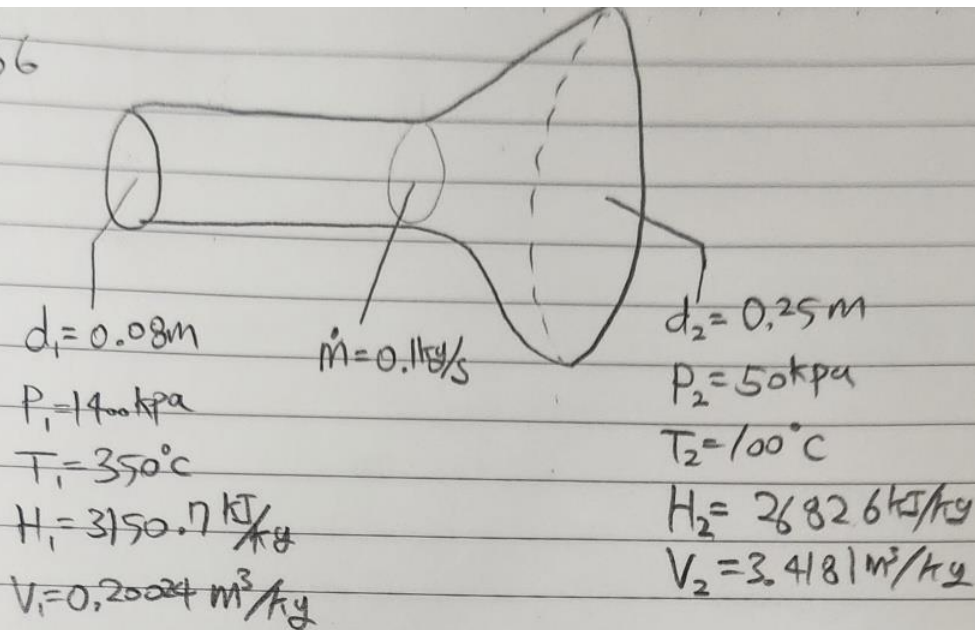 56
d₁=0.08m
ṁ=0.1kg/s
P₁=1400kpa
T₁=350°C
H₁=3150.7 kJ/kg
V₁=0.20024 m³/kg
d₂=0.25m
P₂=50kpa
T₂=100°C
H₂= 2682 6 kJ/kg
V₂=3.4181m³/kg